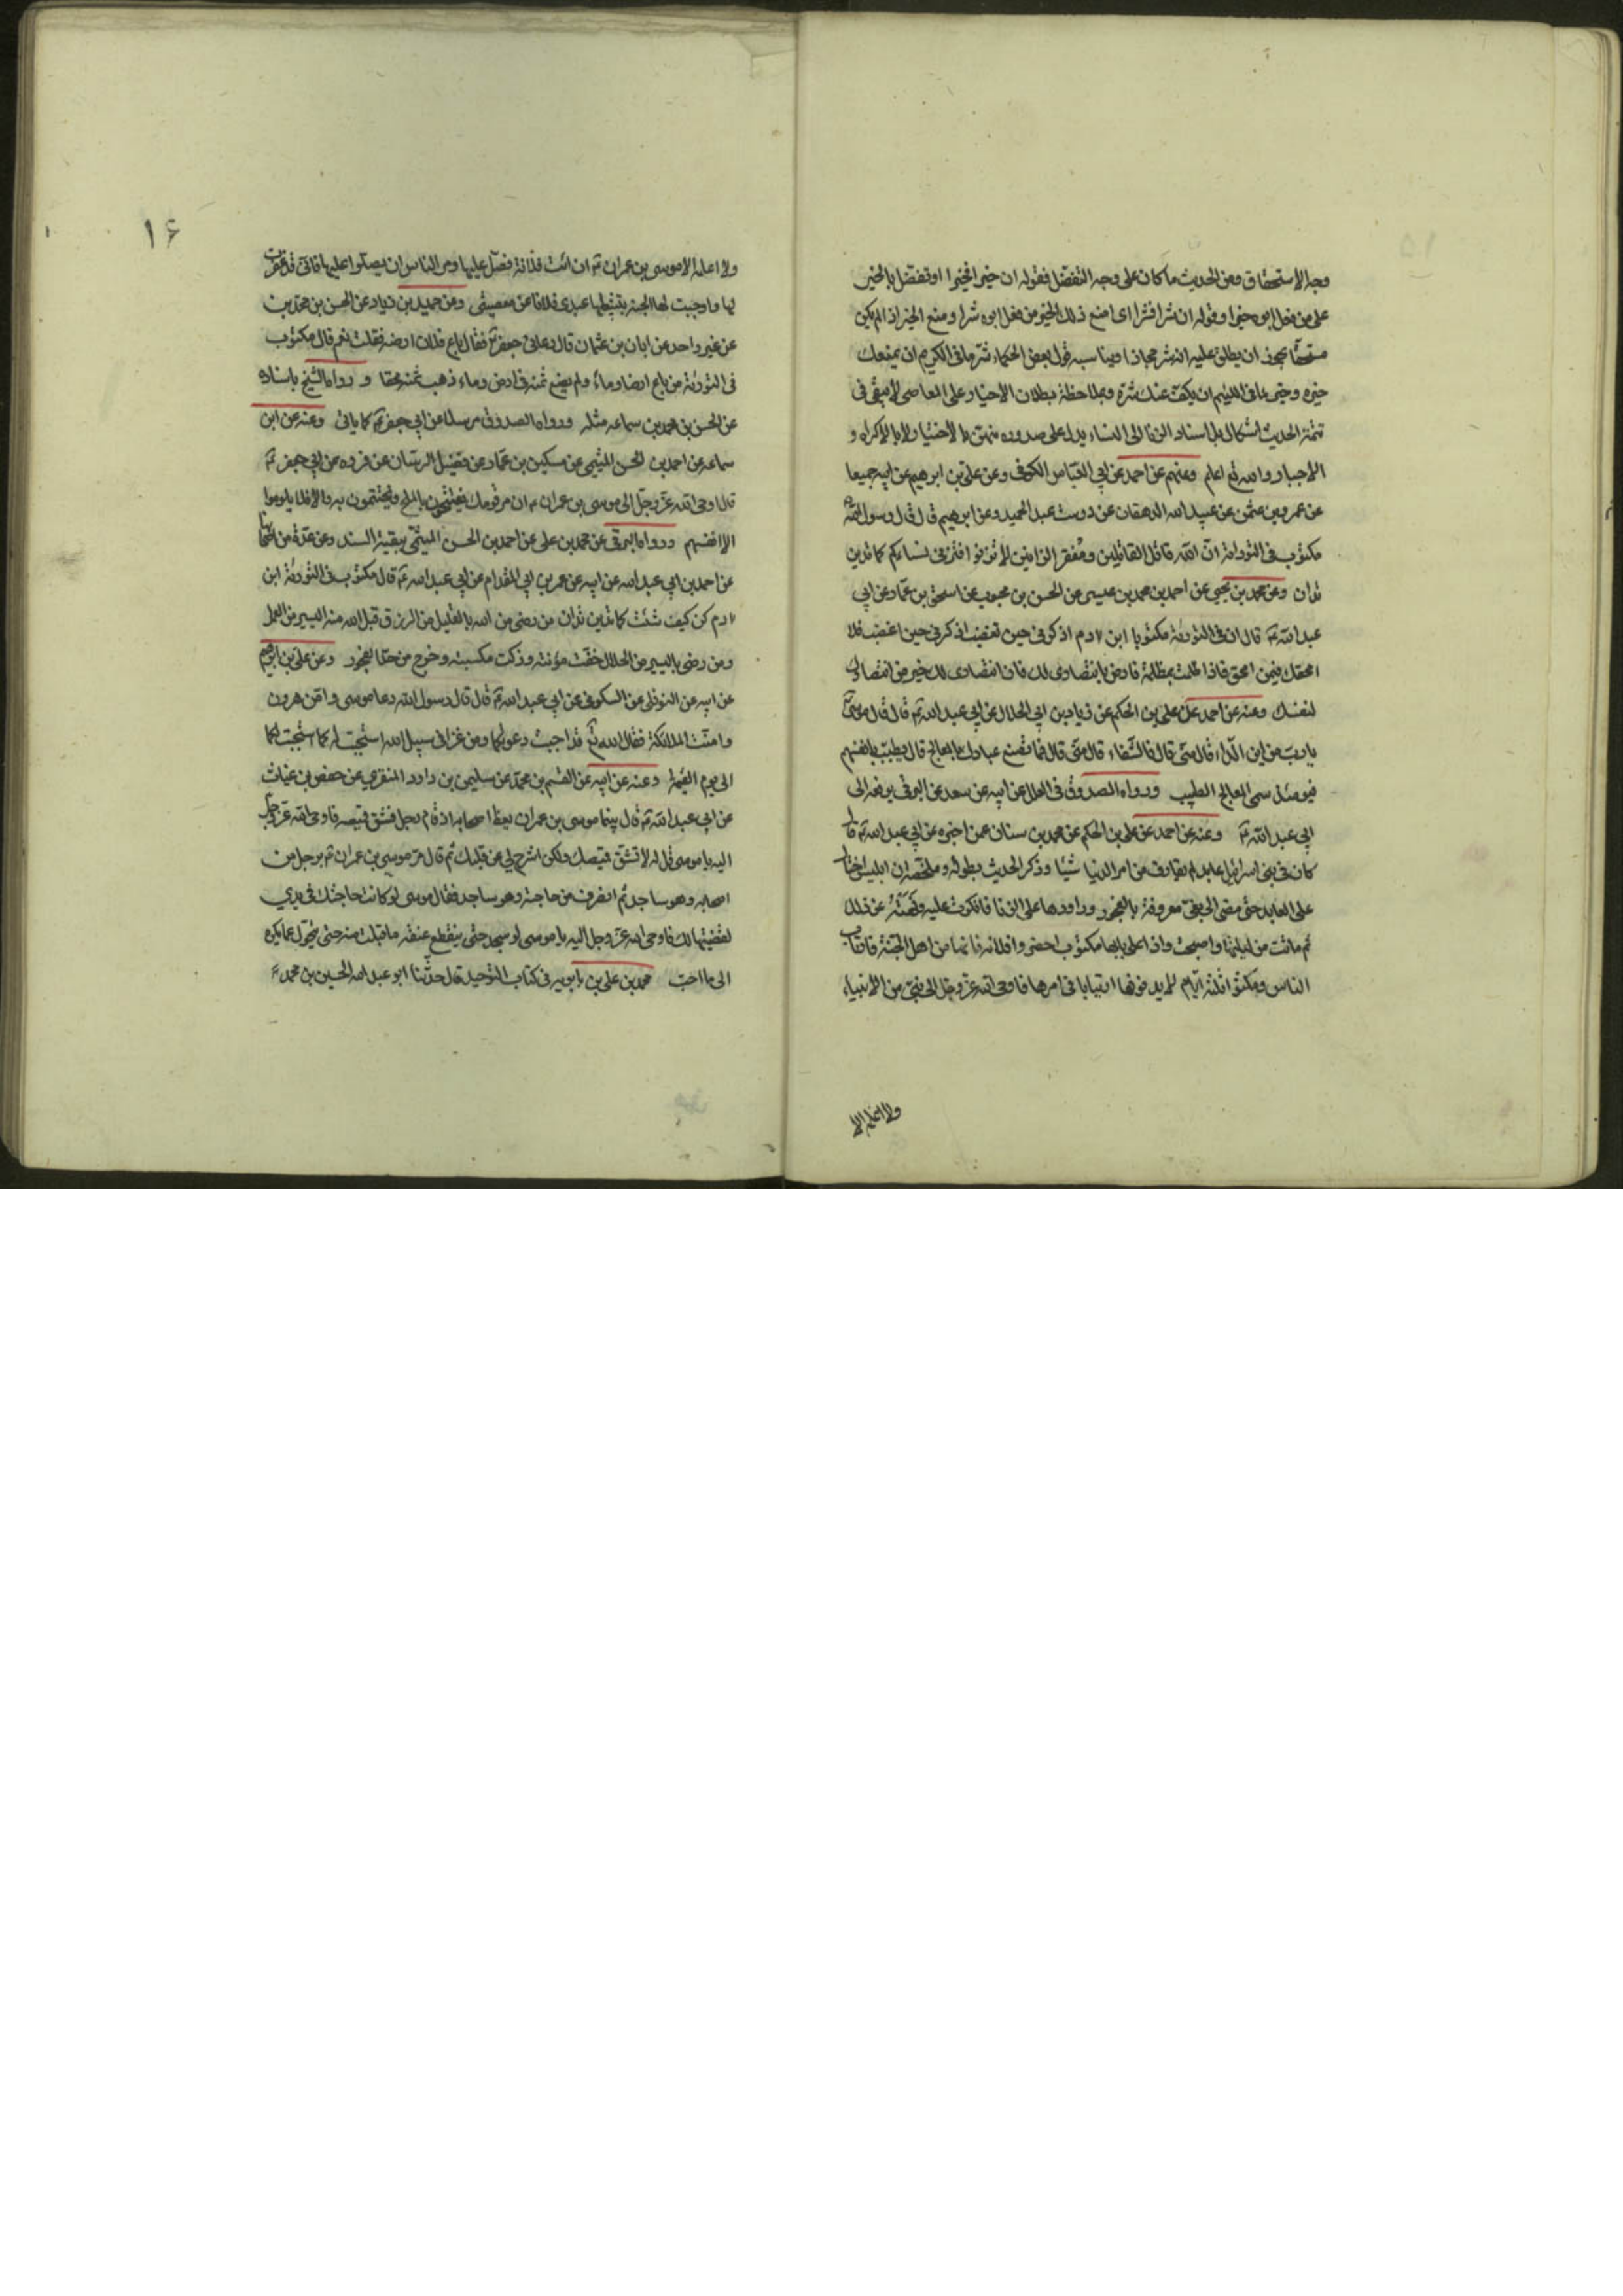 وجه الاستحقاق ومن الحديث ما كان على وجه التفضل فقوله ان خيرا فخيرا او تفضل بالخير
على من فعل ابوه خيرا وقوله ان شرا فشرا اى امنع ذلك الخير من فعل ابوه شرا ومنع الخير اذا لم يكن
مستحقا يجوز ان يطلق عليه انه شر مجازا ويناسبه قول بعض الحكماء شر ما فى الكريم ان يمنعك
خيره وخير ما فى اللئيم ان يكف عنك شره وبملاحظة بطلان الاحباط على المعاصى لا يبقى فى
تتمة الحديث اشكال بل اسناد الزنا الى النساء يدل على صدوره منهن بالاختيار لا بالاكراه و
الاجبار والله تع اعلم وعنهم عن احمد عن ابي العباس الكوفى وعن على بن ابرهيم عن ابيه جميعا
عن عمرو بن عثمن عن عبيد الله الدهقان عن درست عبد الحميد وعن ابرهيم قال قال رسول الله
مكتوب فى التورية ان الله قاتل القاتلين ومفقر الزانين لا تزنوا فتزنى نساءكم كما تدين
تدان وعن محمد بن يحيى عن احمد بن محمد بن عيسى عن الحسن بن محبوب عن اسحق بن عمار عن ابي
عبد الله ع قال ان فى التورية مكتوبا ابن ادم اذكرنى حين تغضب اذكرك حين اغضب فلا
امحقك فيمن امحق فاذا ظلمت بمظلمة فارض بانتصارى لك فان انتصارى لك خير من انتصارك
لنفسك وعنه عن احمد عن على بن الحكم عن زياد بن ابي الحلال عن ابي عبد الله ع قال قال موسى
يا رب من اين الداء قال منى قال فالشفاء قال منى قال فما يصنع عبادك بالمعالج قال يطيب بانفسهم
فيومئذ سمى المعالج الطبيب ورواه الصدوق فى العلل عن ابيه عن سعد عن البرقى يرفعه الى
ابي عبد الله ع وعنه عن احمد عن على بن الحكم عن محمد بن سنان عمن اخبره عن ابي عبد الله ع قال
كان فى بنى اسرائيل عابد لم يقارف من امر الدنيا شيئا وذكر الحديث بطوله وملخصه ان ابليس احتال
على العابد حتى مضى الى بغى معروفة بالفجور وراودها على الزنا فانكرت عليه ونهته عن ذلك
ثم ماتت من ليلتها واصبحت واذا على بابها مكتوب احضروا فلانة فانها من اهل الجنة فارتاب
الناس ومكثوا ثلثة ايام لا يدفنونها ارتيابا فى امرها فاوحى الله عز وجل الى نبى من الانبياء
ولا اعلم الا
١۶
ولا اعلمه الا موسى بن عمران ع ان ائت فلانة فصل عليها ومر الناس ان يصلوا عليها فانى قد غفرت
لها واوجبت لها الجنة بتثبيطها عبدى فلانا عن معصيتى وعن حميد بن زياد عن الحسن بن محمد بن
عن غير واحد عن ابان بن عثمان قال دعانى جعفر ع فقال باع فلان ارضه فقلت نعم قال مكتوب
فى التورية من باع ارضا وماء ولم يضع ثمنه فى ارض وماء ذهب ثمنه محقا و رواه الشيخ باسناده
عن الحسن بن محمد بن سماعه مثله ورواه الصدوق مرسلا عن ابي جعفر ع كما ياتى وعنه عن ابن
سماعه عن احمد بن الحسن الميثمى عن مسكين بن عمار عن فضيل الرسان عن فروه عن ابي جعفر ع
قال اوحى الله عز وجل الى موسى بن عمران ع ان مر قومك يفتتحون بالملح ويختتمون به والا فلا يلوموا
الا انفسهم ورواه البرقى عن محمد بن على عن احمد بن الحسن الميثمى ببقية السند وعن عدة من اصحابنا
عن احمد بن ابي عبد الله عن ابيه عن عمرو بن ابي المقدام عن ابي عبد الله ع قال مكتوب فى التورية ابن
ادم كن كيف شئت كما تدين تدان من رضى من الله بالقليل من الرزق قبل الله منه اليسير من العمل
ومن رضى باليسير من الحلال خفت مؤنته وزكت مكسبته وخرج من حد الفجور وعن على بن ابرهيم
عن ابيه عن النوفلى عن السكونى عن ابي عبد الله ع قال قال رسول الله دعا موسى وامن هرون
وامنت الملائكة فقال الله تع قد اجيبت دعوتكما ومن غزا فى سبيل الله استجيب له كما استجبت لكما
الى يوم القيمة وعنه عن ابيه عن القسم بن محمد عن سليمن بن داود المنقرى عن حفص بن غياث
عن ابي عبد الله ع قال بينما موسى بن عمران يعظ اصحابه اذ قام رجل فشق قميصه فاوحى الله عز وجل
اليه يا موسى قل له لا تشق قميصك ولكن اشرح لى عن قلبك ثم قال مر موسى بن عمران ع برجل من
اصحابه وهو ساجد ثم انصرف من حاجته وهو ساجد فقال موسى لو كانت حاجتك فى يدى
لقضيتها لك فاوحى الله عز وجل اليه يا موسى لو سجد حتى ينقطع عنقه ما قبلت منه حتى يتحول عما اكره
الى ما احب محمد بن على بن بابويه فى كتاب التوحيد قال حدثنا ابو عبد الله الحسين بن محمد